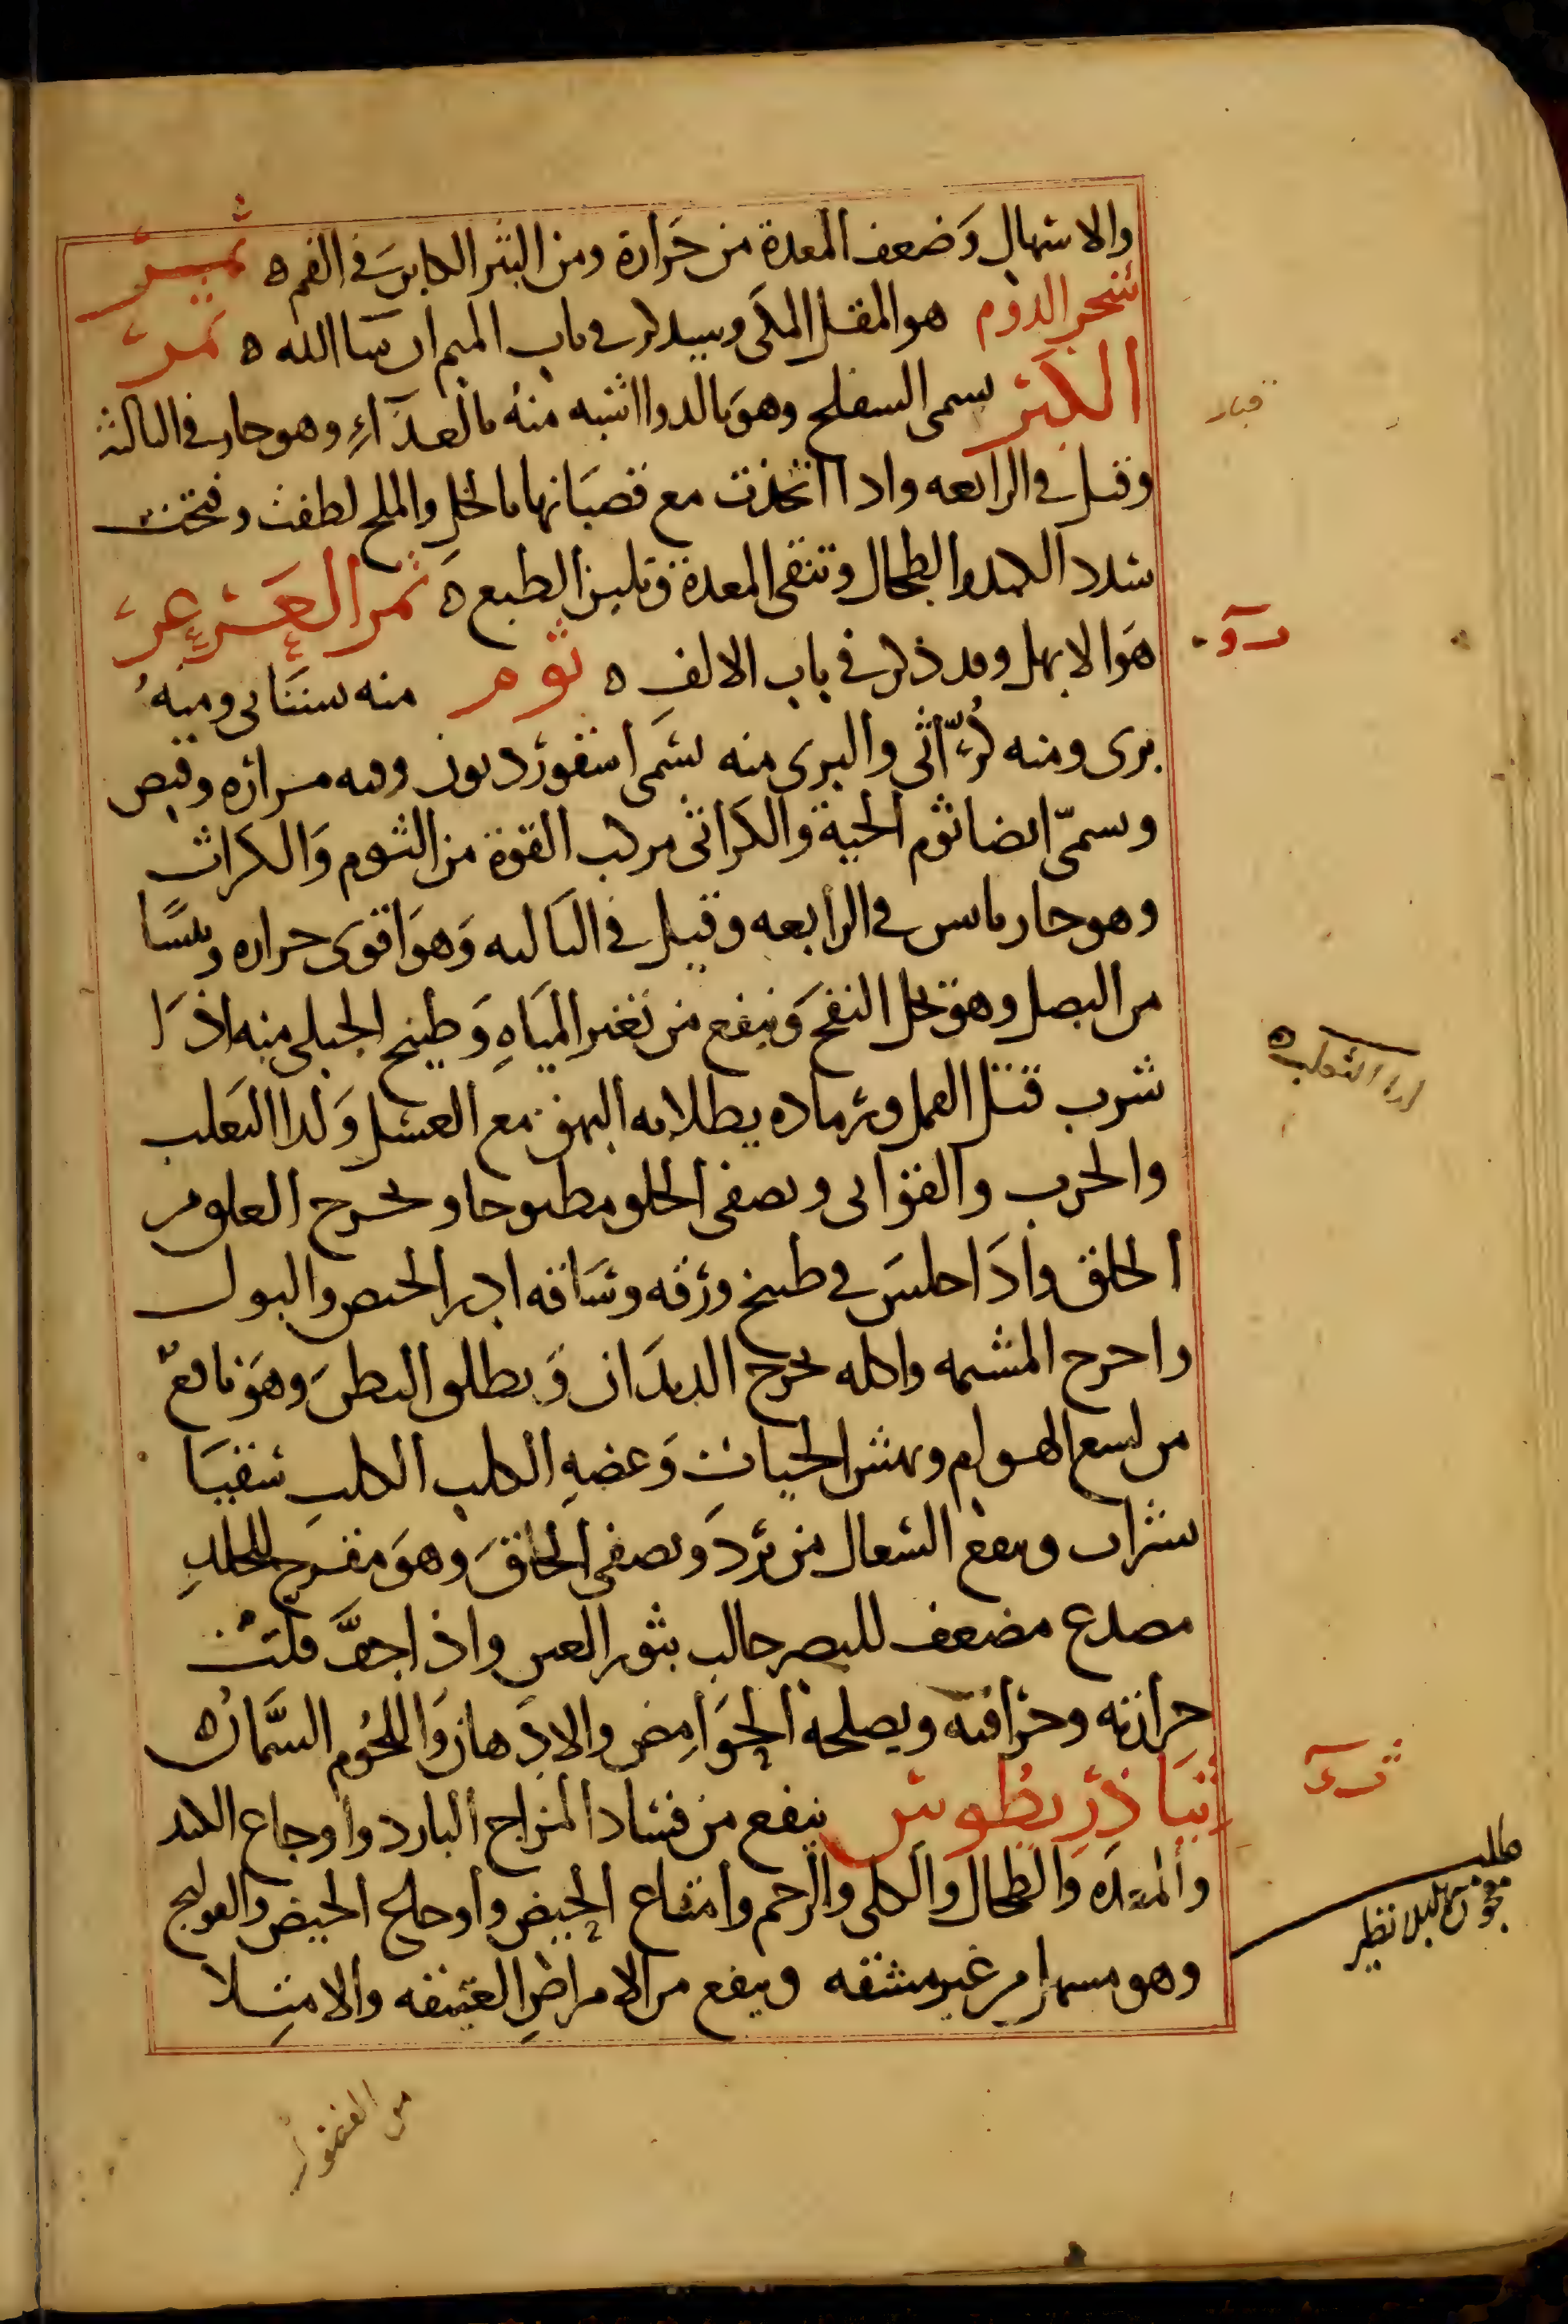 والاسهال وضعف المعدة من حرارة ومن البثر الكاين في الفم ه ثمر
شجر الدوم هو المقل المكى وسيذكر في باب الميم ان شا الله ه ثمرُ
الكَبَر يسمى الشفلح وهو بالدوا اشبه منهُ بالغذآءِ وهو حار في الثالثة
وقيل في الرابعه واذا اتخذت مع قصبَانها بالخل والملح لطفت وفتحت
سدد الكبد والطحال وتنقى المعدة وتلين الطبع ه ثمر العَرعر
هَو الابهل وقد ذكر في باب الالف ه ثوم منه بستَانى ومنهُ
برى ومنه كُرّاثى والبرى منه يسَمى اسقوردیون وفيه مرارة وقبض
ويسمّى ايضا ثوم الحية والكراثى مركب القوة من الثوم وَالكراث
وهو حار يابس في الرابعه وقيل في الثالثه وَهوَ اقوى حراره ويبسًا
من البصل وهو يحل النفخ وَينفع من تغير الميَاهِ وَطبيخ الجبلى منه اذَا
شرب قتل القمل ورماده يطلا به البهق مع العسل وَلدا الثعلب
والجرب والقوابى ويصفى الحلق مطبوخا ويخرج العلق من
الحلق واذَا جلسَ في طبيخ ورقه وسَاقه ادر الحيض والبول
واخرج المشيمه واكله يخرج الديدَان وَيطلق البطن وَهوَ نافعٌ
من لسع الهوام ونهش الحيات وَعضهِ الكلب الكلبِ سقيَا
بشراب وينفع السُعال من بَردَ ويصفى الحلقَ وهوَ مقرح للجلدِ
مصدع مضعف للبصر جالب بثور العين واذا جفَّ قلتْ
حرارته وحرافته ويصلحهُ الحَوَامِض والادهان وَاللحُوم السَّمان ه
ثيَاذريطوس ينفع من فسَاد المزاج البارد وأوجاع الكبد
والمعدَه وَالطحال وَالكلى والرحم وامتناع الحيض وأوجاع الحيض والقولنج
وهو مسهل من غير مشقه وينفع من الامراضِ العتيقه والامتِلا
ثآو
لداء الثعلب ه
ثآى
مطلب
معجون مسهل بلا نظير